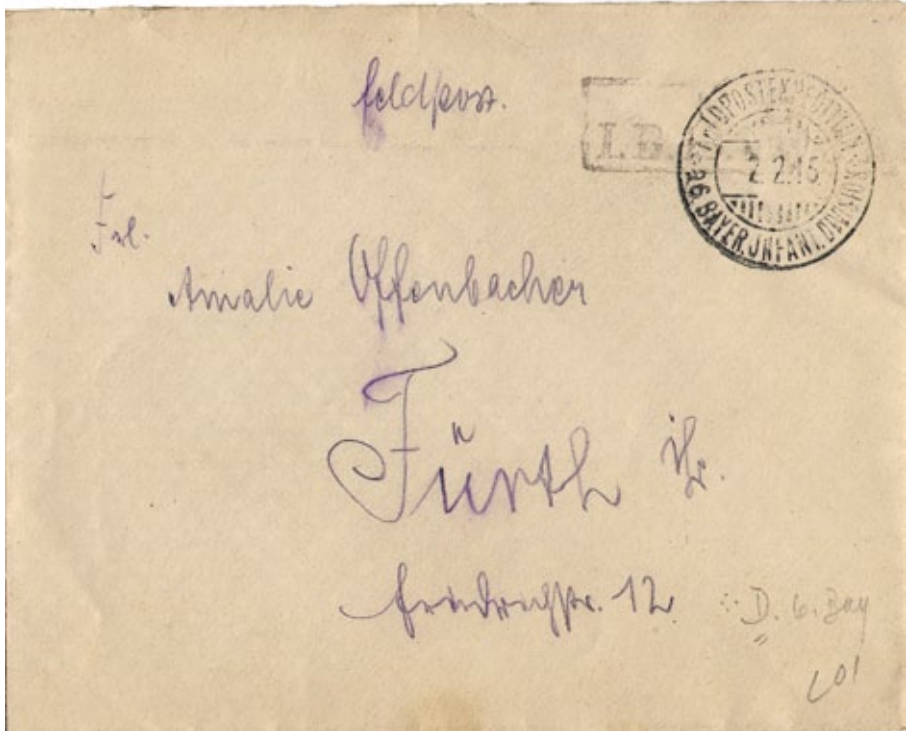 Feldpost.
I. B.
FELDPOSTEXPEDITION
6. BAYER. JNFANT. DIVISION
Frl.
Amalie Offenbacher
Fürth i/b.
Friedrichstr. 12
D. 6. Bay